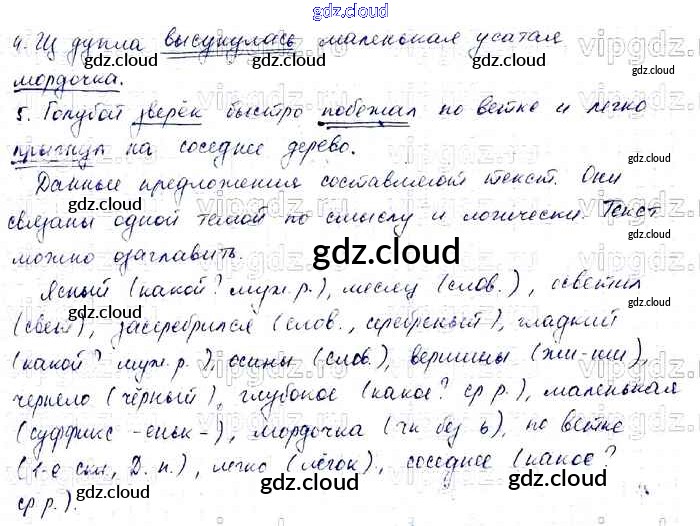 gdz.cloud
4. Из дупла высунулась маленькая усатая
мордочка.
5. Голубой зверёк быстро побежал по ветке и легко
прыгнул на соседнее дерево.
Данные предложения составляют текст. Они
связаны одной темой по смыслу и логически. Текст
можно озаглавить.
Ясный (какой? муж. р.), месяц (слов.), осветил
(свет), засеребрился (слов., серебряный), гладкий
(какой? муж. р.), осины (слов.), вершины (жи-ши),
чернело (чёрный), глубокое (какое? ср р.), маленькая
(суффикс -еньк-), мордочка (чк без ь), по ветке
(1-е скл, Д. п.), легко (лёгок), соседнее (какое?
ср р.).